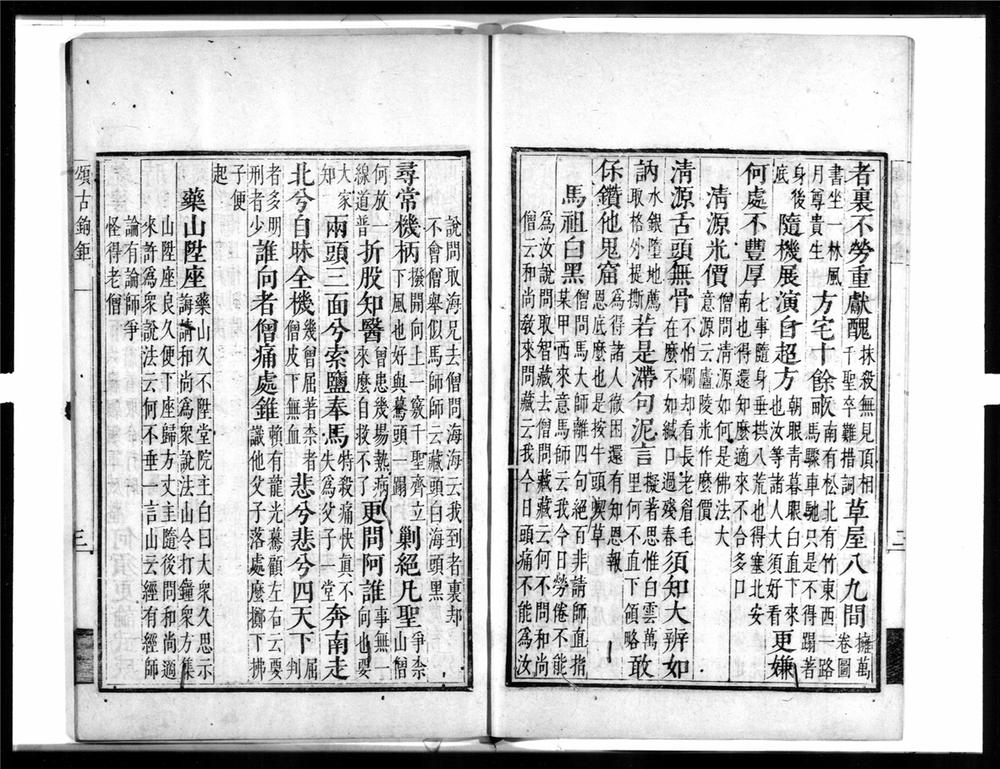 者裏不勞重獻醜抹殺無見頂相千聖卒難措詞草屋八九間擁萬卷圖
書坐一林風月尊貴生方宅十餘畝南有松北有竹東西一路馬驟車馳只是不得蹋著
身後底隨機展演自超方朝眼青暮眼白直下來也汝等諸人大須好看更嫌
何處不豐厚七事隨身垂拱八荒也得塞北安南也得還知麼適來不合多口
清源光價僧問清源如何是佛法大意源云廬陵光作麼價
清源舌頭無骨不怕爛却看長老眉毛在麼不如緘口過殘春須知大辨如
訥水銀墮地薦取格外提撕若是滯句泥言擬著思惟白雲萬里何不直下領略敢
保鑽他鬼窟爲得諸人徹困還有知恩報恩底麼也是按牛頭喫草
馬祖白黑僧問馬大師離四句絕百非請師直指某甲西來意馬師云我今日勞倦不能
爲汝說問取智藏去僧問藏藏云何不問和尚僧云和尚教來問藏云我今日頭痛不能爲汝
二
說問取海兄去僧問海海云我到者裏却不會僧舉似馬師師云藏頭白海頭黑
尋常機柄撥開向上一竅千聖齊立下風也好與驀頭一蹋剿絕凡聖爭柰山僧
何放一線道普折股知醫曾患幾場熱病來麼自救不了更問阿誰事無一向也要
大家知兩頭三面兮索鹽奉馬特殺痛快真不失爲父子一堂奔南走
北兮自昧全機幾曾屈著柰者僧皮下無血悲兮悲兮四天下屈判
者多明刑者少誰向者僧痛處錐有龍光驀顧左右云要識他父子落處麼擲下拂
子便起
藥山陞座藥山久不陞堂院主白曰大衆久思示誨請和尚爲衆說法山令打鐘衆方集
山陞座良久便下座歸方丈主隨後問和尚適來許爲衆說法云何不垂一言山云經有經師
論有論師爭怪得老僧
頌古鉤鉅
三